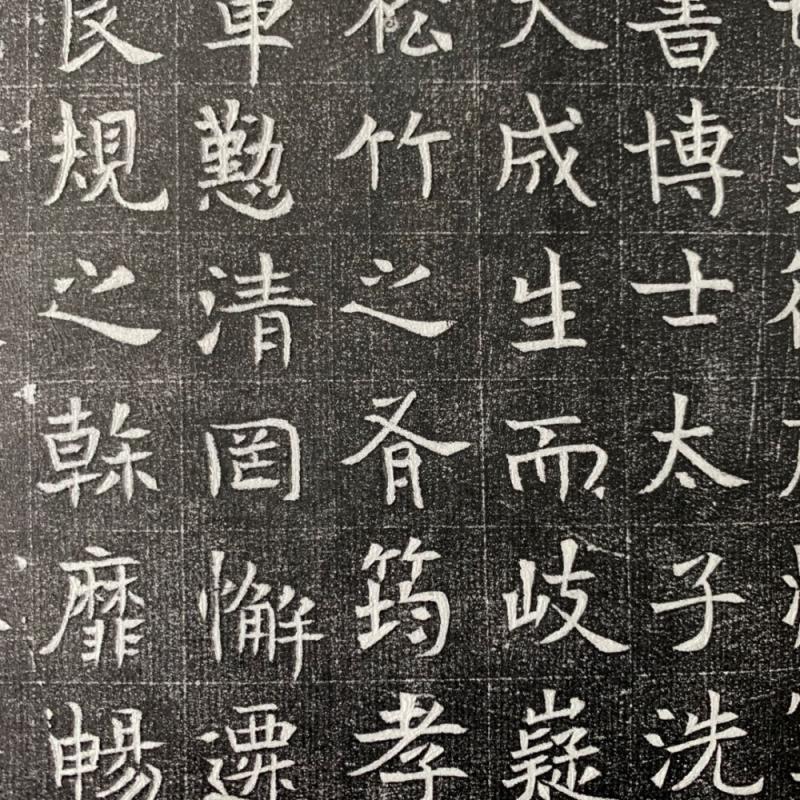 書博士太子洗
大成生而岐嶷
松竹之肴筠孝
軍懃清罔懈
良規之榦靡暢